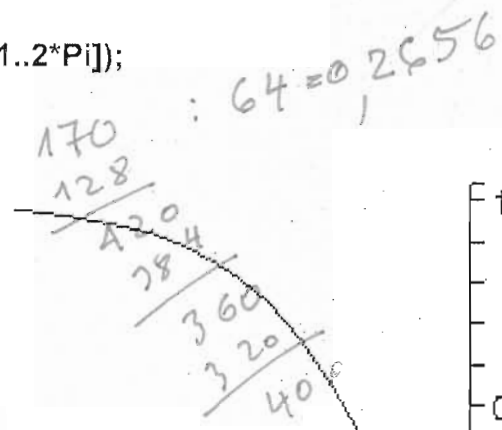 1..2*Pi]);
170 : 64 = 0,2656
128
420
384
360
320
40